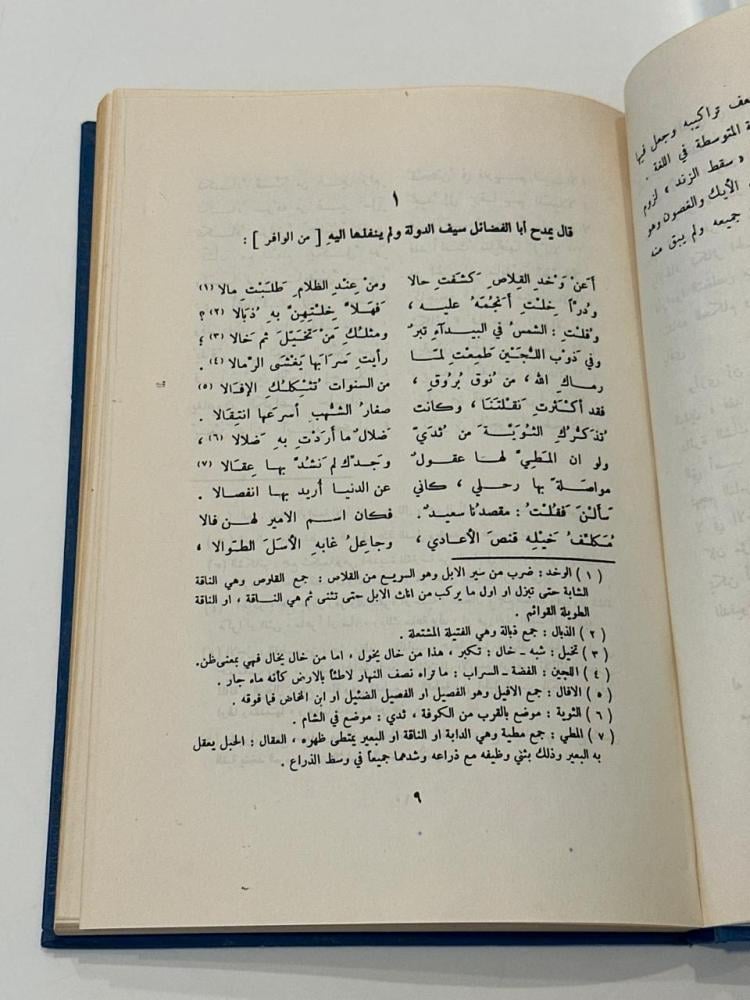 ١
قال يمدح أبا الفضائل سيف الدولة ولم ينفذها اليه [ من الوافر ] :
أعَنْ وَخْدِ القِلاصِ كَشَفْتِ حالا ومنْ عِنْدِ الظلامِ طَلَبْتِ مالا (١)
ودُرّاً خِلْتِ أنجُمَهُ عليه ، فَهَلاّ خِلْتِهِنّ بهِ ذُبَالا (٢) ؟
وقُلْتِ : الشمسُ في البيداءِ تبرٌ ومثلُكِ مَنْ تَخَيّلَ ثم خالا (٣) ؛
وفي ذَوْبِ اللُّجَيْنِ طَمِعْتِ لمّا رأيتِ سَرَابَها يَغْشَى الرّمالا (٤) .
رماكِ الله ، من نُوقٍ بُرُوقٍ ، من السنوات تُثْكِلُكِ الإفالا (٥)
فقد أكثَرْتِ نَقْلَتَنَا ، وكانت صغارُ الشُّهبِ أسرَعها انتِقَالا .
تُذكّرُكِ الثَّوِيّةَ من ثُدَيّ ضَلالٌ ما أرَدْتِ بهِ ضَلالا (٦) ،
ولو ان المَطيّ لها عقولٌ وجَدِّكِ لم نَشُدّ بها عِقالا (٧)
مواصَلَةً بها رحلي ، كاني عن الدنيا أريد بها انفصالا .
سألْنَ فقُلْتُ : مقصدُنا سعيدٌ . فكان اسم الامير لهن فالا
مُكَلّفُ خَيْلِهِ قنصَ الأعادي ، وجاعِلُ غابِهِ الأسَلَ الطّوالا ،
( ١ ) الوخد : ضرب من سير الابل وهو السريع من القلاص : جمع القلوص وهي الناقة
الشابة حتى تبزل او اول ما يركب من اناث الابل حتى تثنى ثم هي الناقة ، او الناقة
الطويلة القوائم .
( ٢ ) الذبال : جمع ذبالة وهي الفتيلة المشتعلة .
( ٣ ) تخيل : شبه - خال : تكبر ، هذا من خال يخول ، اما من خال يخال فهي بمعنى ظن.
( ٤ ) اللجين : الفضة - السراب : ما تراه نصف النهار لاطئاً بالارض كأنه ماء جار .
( ٥ ) الافال : جمع الافيل وهو الفصيل او الفصيل الضئيل او ابن المخاض فما فوقه .
( ٦ ) الثوية : موضع بالقرب من الكوفة ، ثدي : موضع في الشام .
( ٧ ) المطي : جمع مطية وهي الدابة او الناقة او البعير يمتطى ظهره ، العقال : الحبل يعقل
به البعير وذلك بثني وظيفه مع ذراعه وشدهما جميعاً في وسط الذراع .
٩
تراكيبه وجعل فيها
المتوسطة في اللغة .
« سقط الزند » لزوم
الأيك والغصون وهو
جميعه ولم يبق منه